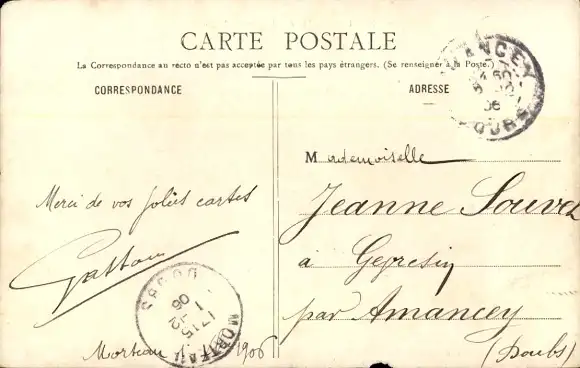 CARTE POSTALE
La Correspondance au recto n'est pas acceptée par tous les pays étrangers. (Se renseigner à la Poste.)
CORRESPONDANCE
ADRESSE
AMANCEY
06
DOUBS
Mademoiselle
Merci de vos jolies cartes
Jeanne
à
par Amancey
(Doubs)
MORTEAU
DOUBS
06
Morteau 1906